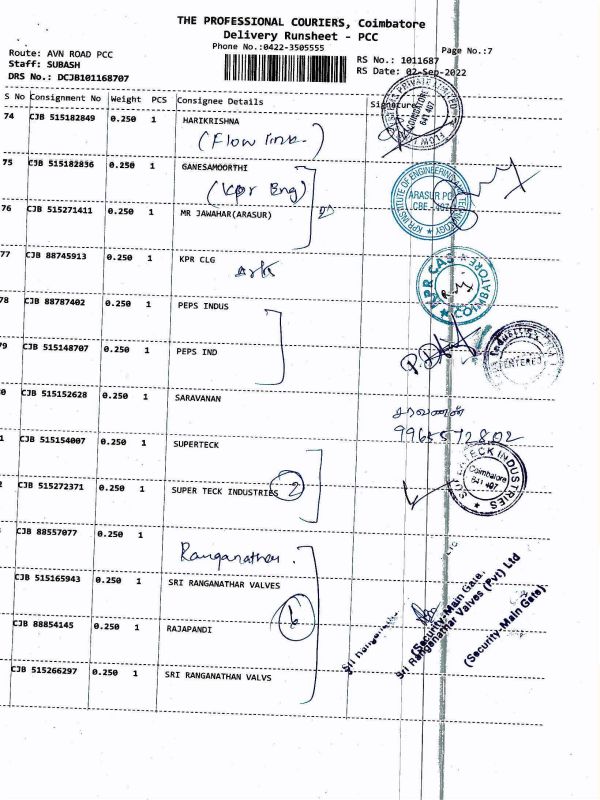 THE PROFESSIONAL COURIERS, Coimbatore
Delivery Runsheet - PCC
Phone No.:0422-3505555
Page No.:7
Route: AVN ROAD PCC
RS No.: 1011687
Staff: SUBASH
RS Date: 02-Sep-2022
DRS No.: DCJB101168707
S No Consignment No Weight PCS Consignee Details Signature
74 CJB 515182849 0.250 1 HARIKRISHNA
(Flow
75 CJB 515182836 0.250 1 GANESAMOORTHI
(Kpr Eng)
KPR INSTITUTE OF ENGINEERING AND TECHNOLOGY
ARASUR PO
CBE - 407
76 CJB 515271411 0.250 1 MR JAWAHAR(ARASUR)
77 CJB 88745913 0.250 1 KPR CLG
KPR CAS
COIMBATORE
78 CJB 88787402 0.250 1 PEPS INDUS
79 CJB 515148707 0.250 1 PEPS IND
0 CJB 515152628 0.250 1 SARAVANAN
சரவணன்
9965572802
1 CJB 515154007 0.250 1 SUPERTECK
TECK INDUSTRIES
Coimbatore
641 407
2 CJB 515272371 0.250 1 SUPER TECK INDUSTRIES 2
CJB 88557077 0.250 1
Ranganathan.
CJB 515165943 0.250 1 SRI RANGANATHAR VALVES
6
CJB 88854145 0.250 1 RAJAPANDI
CJB 515266297 0.250 1 SRI RANGANATHAN VALVS
Sri Ranganathar
(Security-Main Gate)
Sri Ranganathar Valves (Pvt) Ltd
(Security-Main Gate)